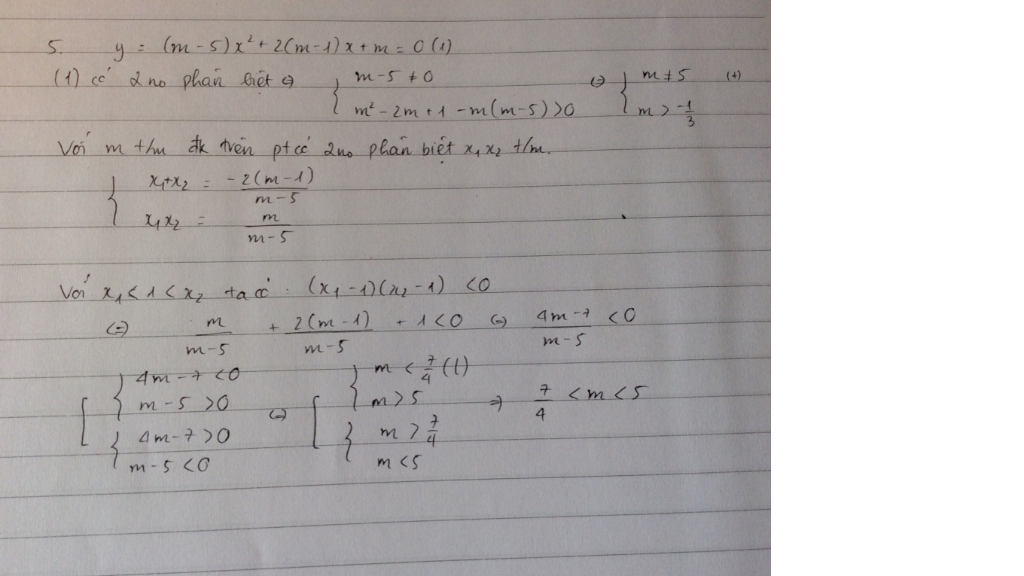 5. y = (m-5)x² + 2(m-1)x + m = 0 (1)
(1) có 2 no phân biệt ⇔ { m-5 ≠ 0 ⇔ { m ≠ 5 (+)
m² - 2m + 1 - m(m-5) > 0 m > -1/3
Với m t/m đk trên pt có 2 no phân biệt x₁ x₂ t/m.
{ x₁+x₂ = -2(m-1)/m-5
x₁x₂ = m/m-5
Với x₁ < 1 < x₂ ta có . (x₁-1)(x₂-1) < 0
⇔ m/m-5 + 2(m-1)/m-5 + 1 < 0 ⇔ 4m-7/m-5 < 0
[ { 4m-7 < 0 ⇔ [ { m < 7/4 (l) ⇒ 7/4 < m < 5
m-5 > 0 m > 5
{ 4m-7 > 0 { m > 7/4
m-5 < 0 m < 5